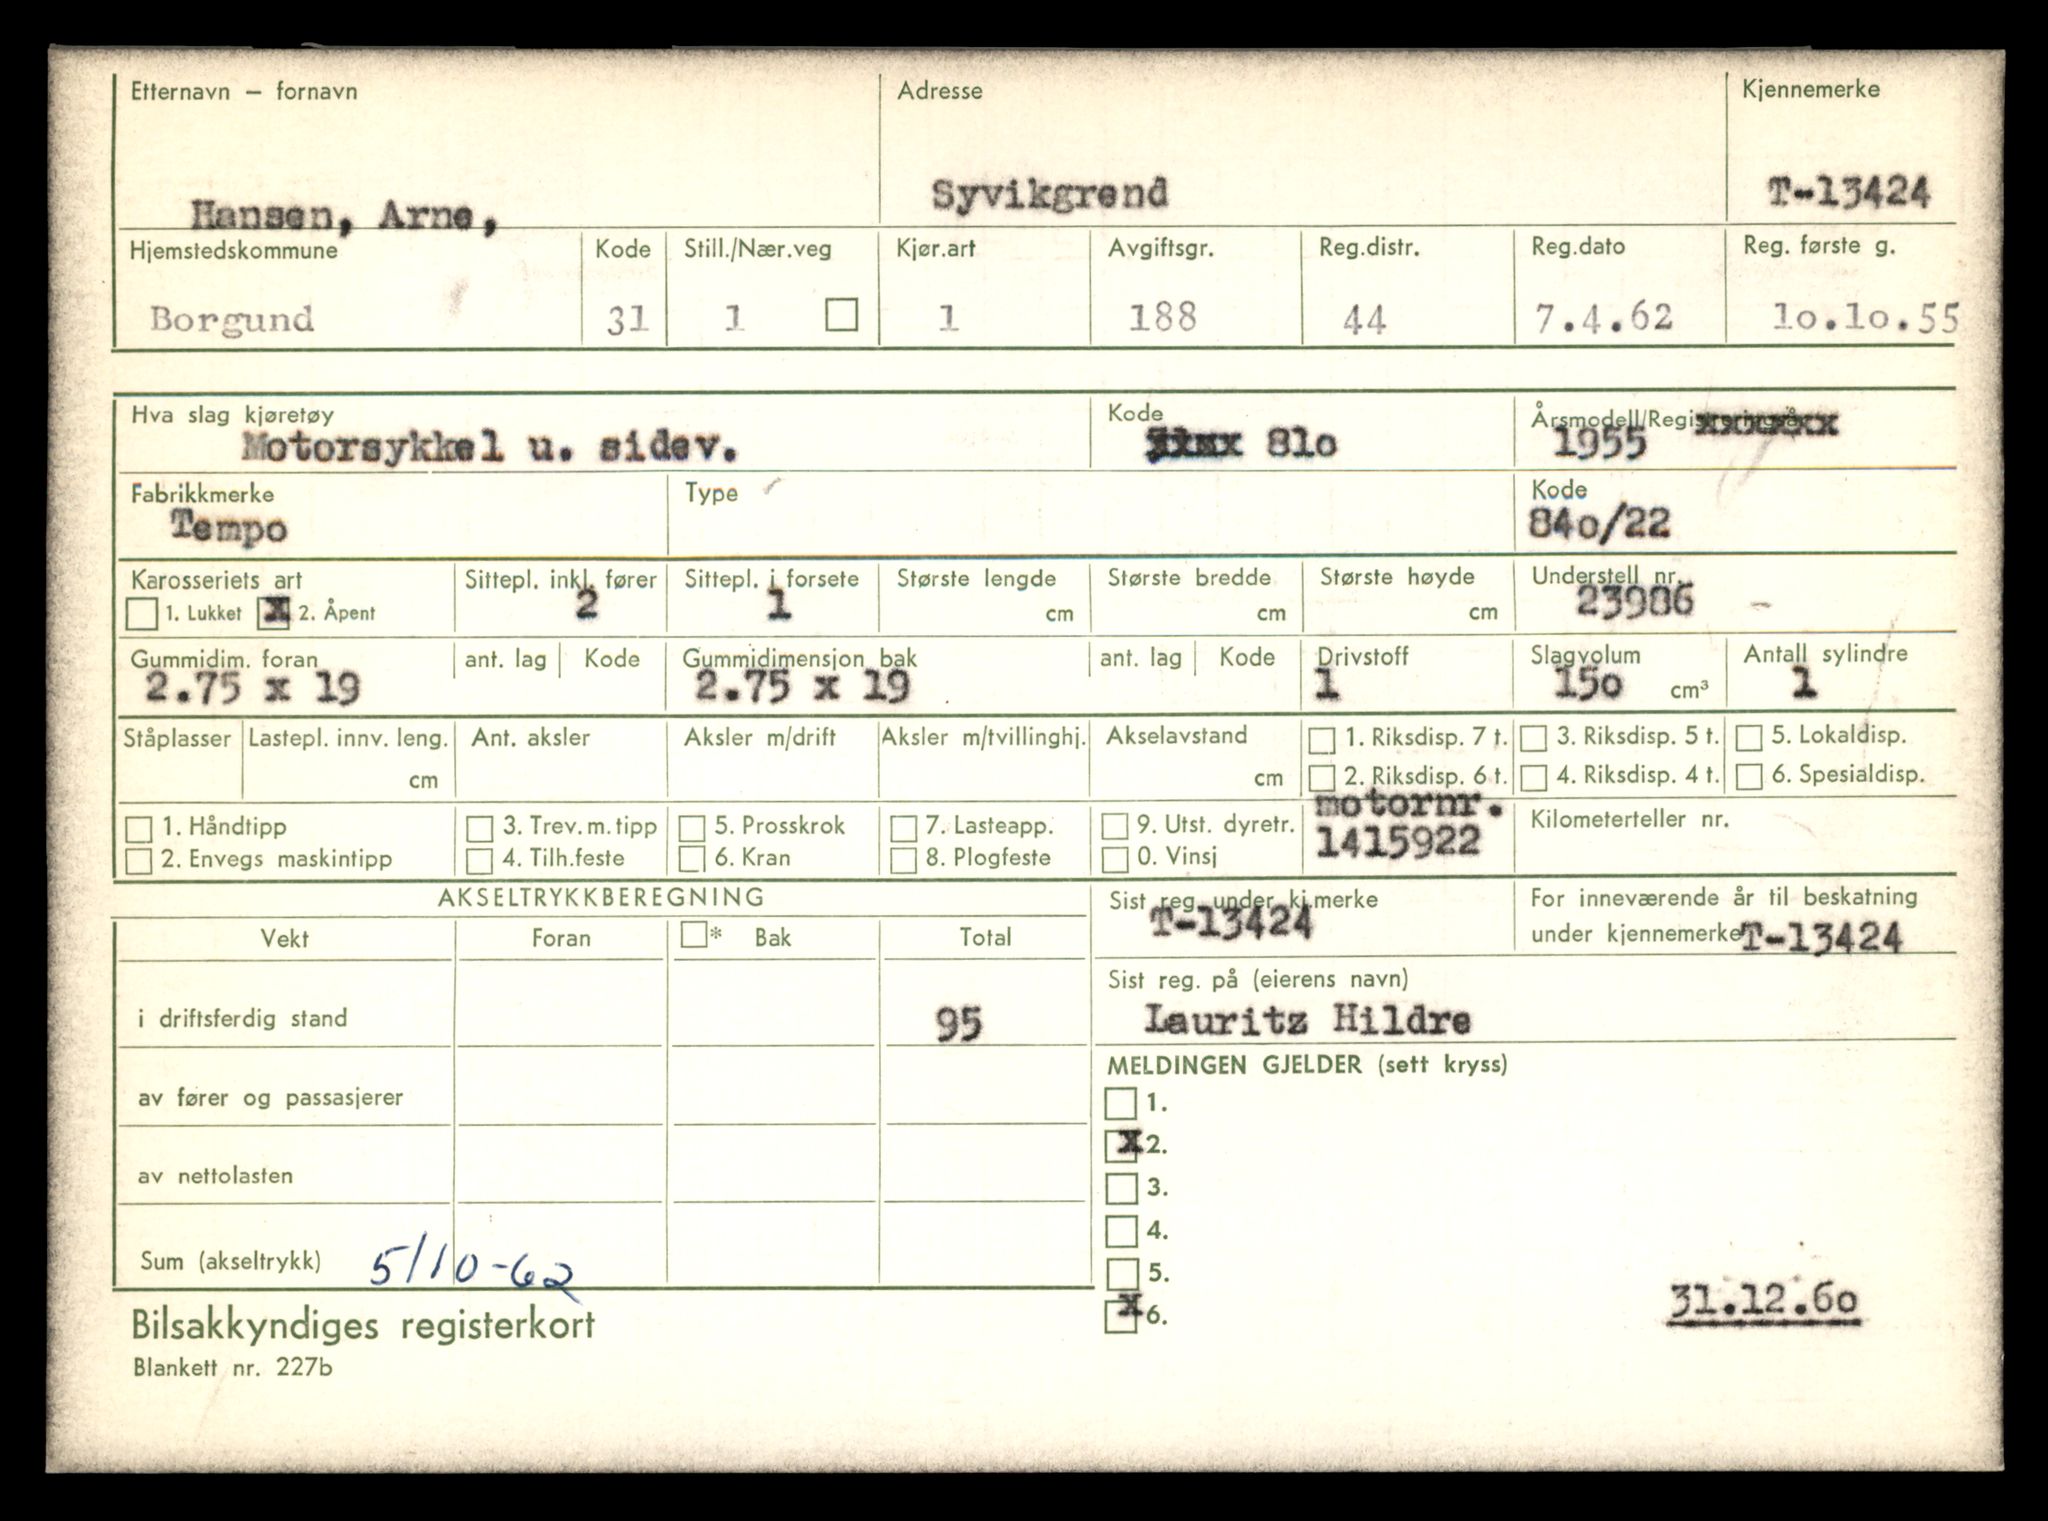 Etternavn – fornavn Adresse Kjennemerke
Hansen, Arne, Syvikgrend T-13424
Hjemstedskommune Kode Still./Nær.veg Kjør.art Avgiftsgr. Reg.distr. Reg.dato Reg. første g.
Borgund 31 1 1 188 44 7.4.62 1o.1o.55
Hva slag kjøretøy Kode Årsmodell/Registreringsår
Motorsykkel u. sidev. 81o 1955
Fabrikkmerke Type Kode
Tempo 84o/22
Karosseriets art Sittepl. inkl. fører Sittepl. i forsete Største lengde Største bredde Største høyde Understell nr.
1. Lukket x 2. Åpent 2 1 cm cm cm 23986
Gummidim. foran ant. lag Kode Gummidimensjon bak ant. lag Kode Drivstoff Slagvolum Antall sylindre
2.75 x 19 2.75 x 19 1 15o cm³ 1
Ståplasser Lastepl. innv. leng. Ant. aksler Aksler m/drift Aksler m/tvillinghj. Akselavstand 1. Riksdisp. 7 t. 3. Riksdisp. 5 t. 5. Lokaldisp.
cm cm 2. Riksdisp. 6 t. 4. Riksdisp. 4 t. 6. Spesialdisp.
motornr.
1. Håndtipp 3. Trev.m.tipp 5. Prosskrok 7. Lasteapp. 9. Utst. dyretr. Kilometerteller nr.
1415922
2. Envegs maskintipp 4. Tilh.feste 6. Kran 8. Plogfeste 0. Vinsj
AKSELTRYKKBEREGNING Sist reg. under kj.merke For inneværende år til beskatning
T-13424
Vekt Foran * Bak Total under kjennemerke T-13424
Sist reg. på (eierens navn)
i driftsferdig stand 95 Lauritz Hildre
MELDINGEN GJELDER (sett kryss)
av fører og passasjerer 1.
x 2.
av nettolasten 3.
4.
Sum (akseltrykk) 5/10-62 5.
31.12.6o
Bilsakkyndiges registerkort x 6.
Blankett nr. 227b